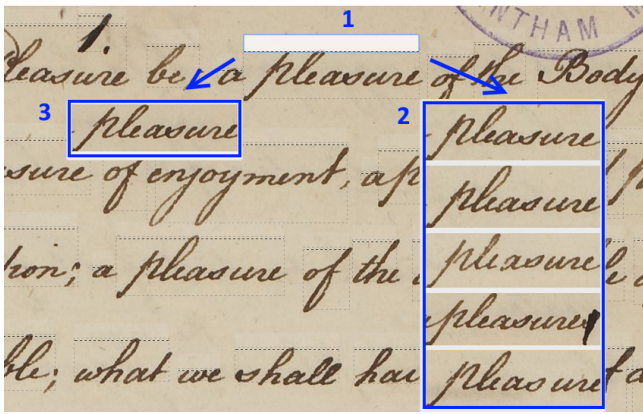 1
NTHAM
1.
leasure be, a pleasure of the Body
3 pleasure
2 pleasure
sure of enjoyment, ap
pleasure
tion; a pleasure of the
pleasure
pleasures
ble; what we shall hav
pleasure